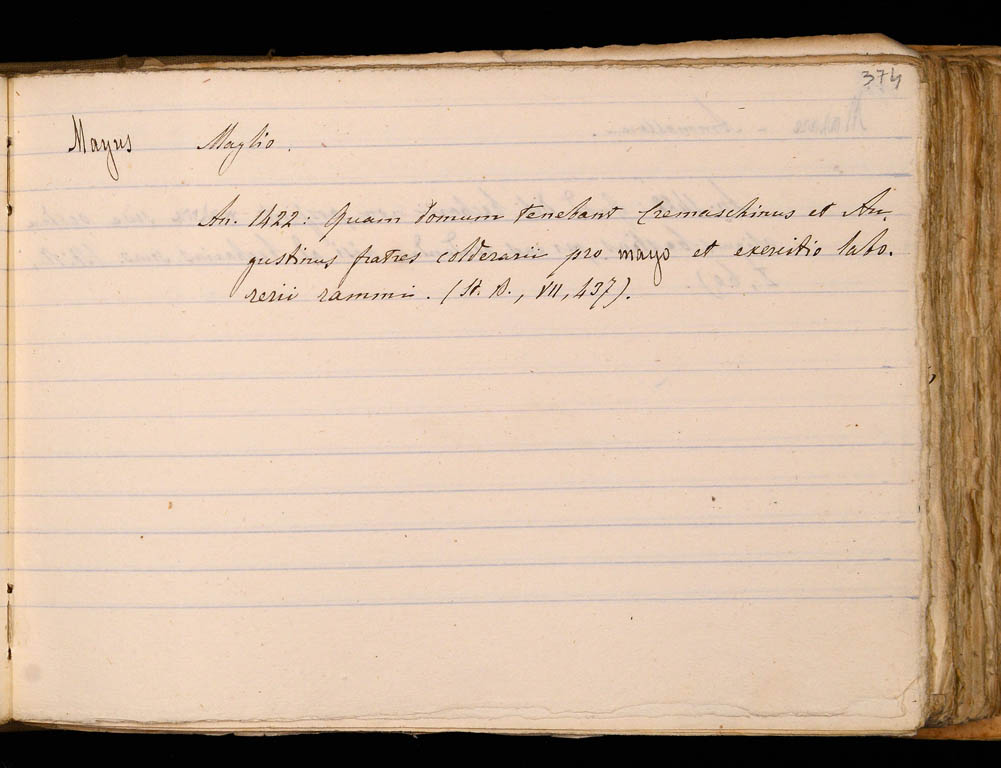 374
Mayus Maglio.
An. 1422: Quam domum tenebant Cremaschinus et Au-
gustinus fratres colderarii pro mayo et exercitio labo-
rerii rammi. (St. B., VII, 437).